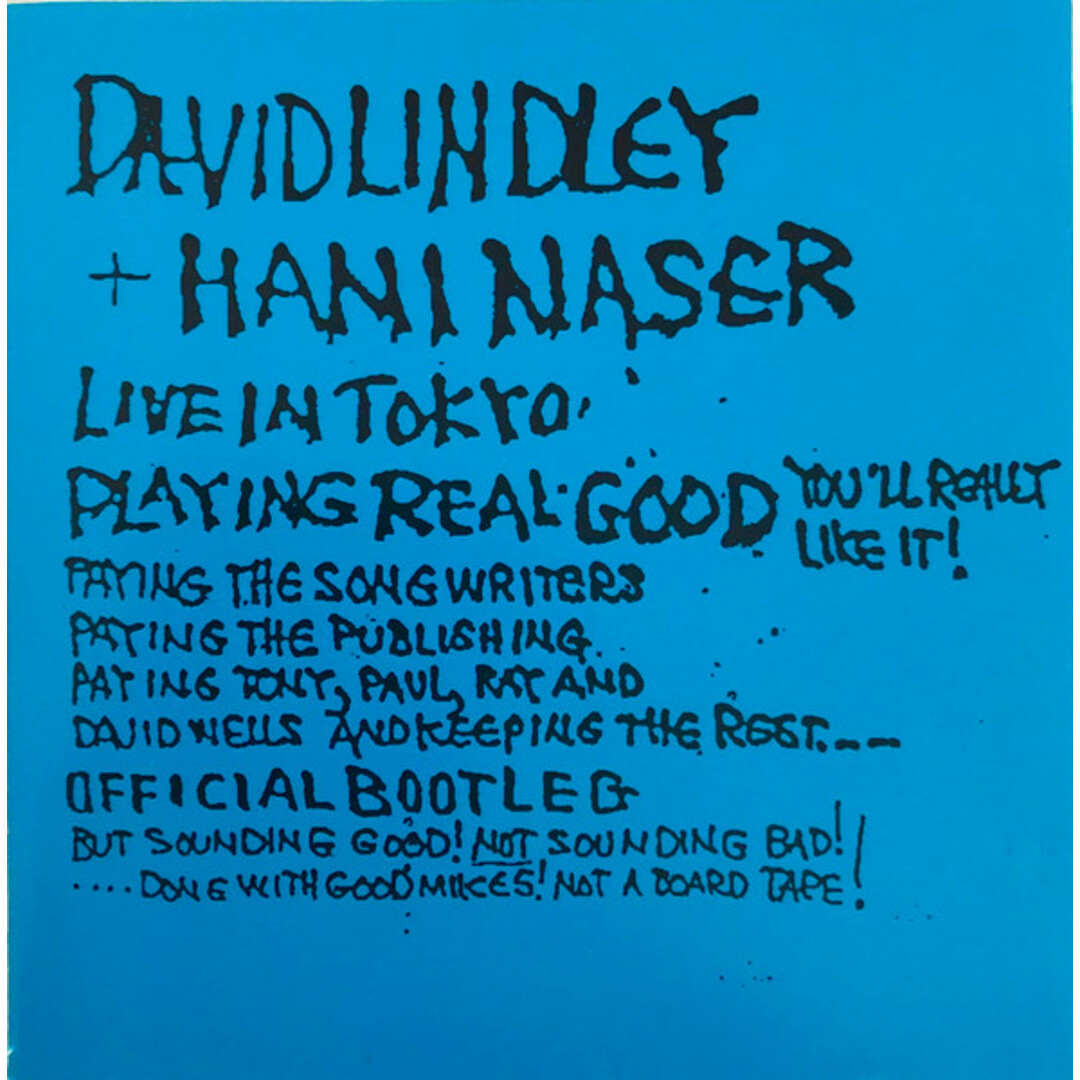 DAVID LINDLEY
+ HANI NASER
LIVE IN TOKYO
PLAYING REAL GOOD YOU'LL REALLY
LIKE IT!
PAYING THE SONGWRITERS
PAYING THE PUBLISHING
PAYING TONY, PAUL, RAY AND
DAVID WELLS AND KEEPING THE REST.---
OFFICIAL BOOTLEG
BUT SOUNDING GOOD! NOT SOUNDING BAD!
....DONE WITH GOOD MIKES! NOT A BOARD TAPE!